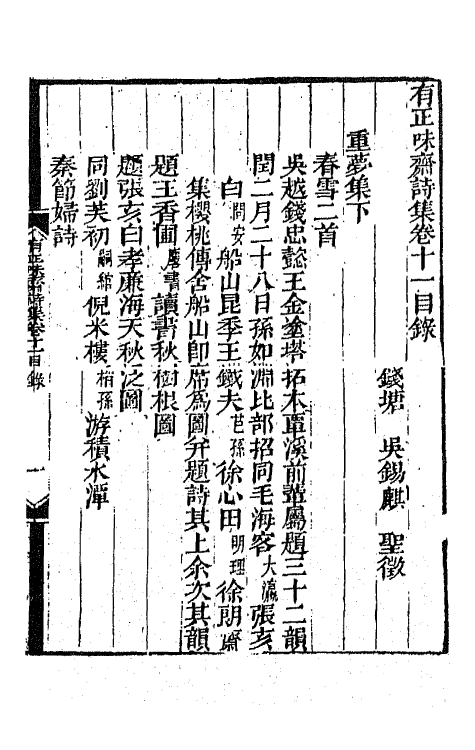 有正味齋詩集卷十一目錄
錢塘 吳錫麒 聖徵
重夢集下
春雪二首
吳越錢忠懿王金塗塔拓本覃溪前輩屬題三十二韻
閏二月二十八日孫如淵比部招同毛海客大瀛張亥
白問安船山昆季王鐵夫芑孫徐心田明理徐朗齋
集櫻桃傳舍船山卽席爲圖幷題詩其上余次其韻
題王香圃慶書讀書秋樹根圖
題張亥白孝廉海天秋泛圖
同劉芙初嗣綰倪米樓稻孫游積水潭
秦節婦詩
有正味齋詩集卷十一目錄
一